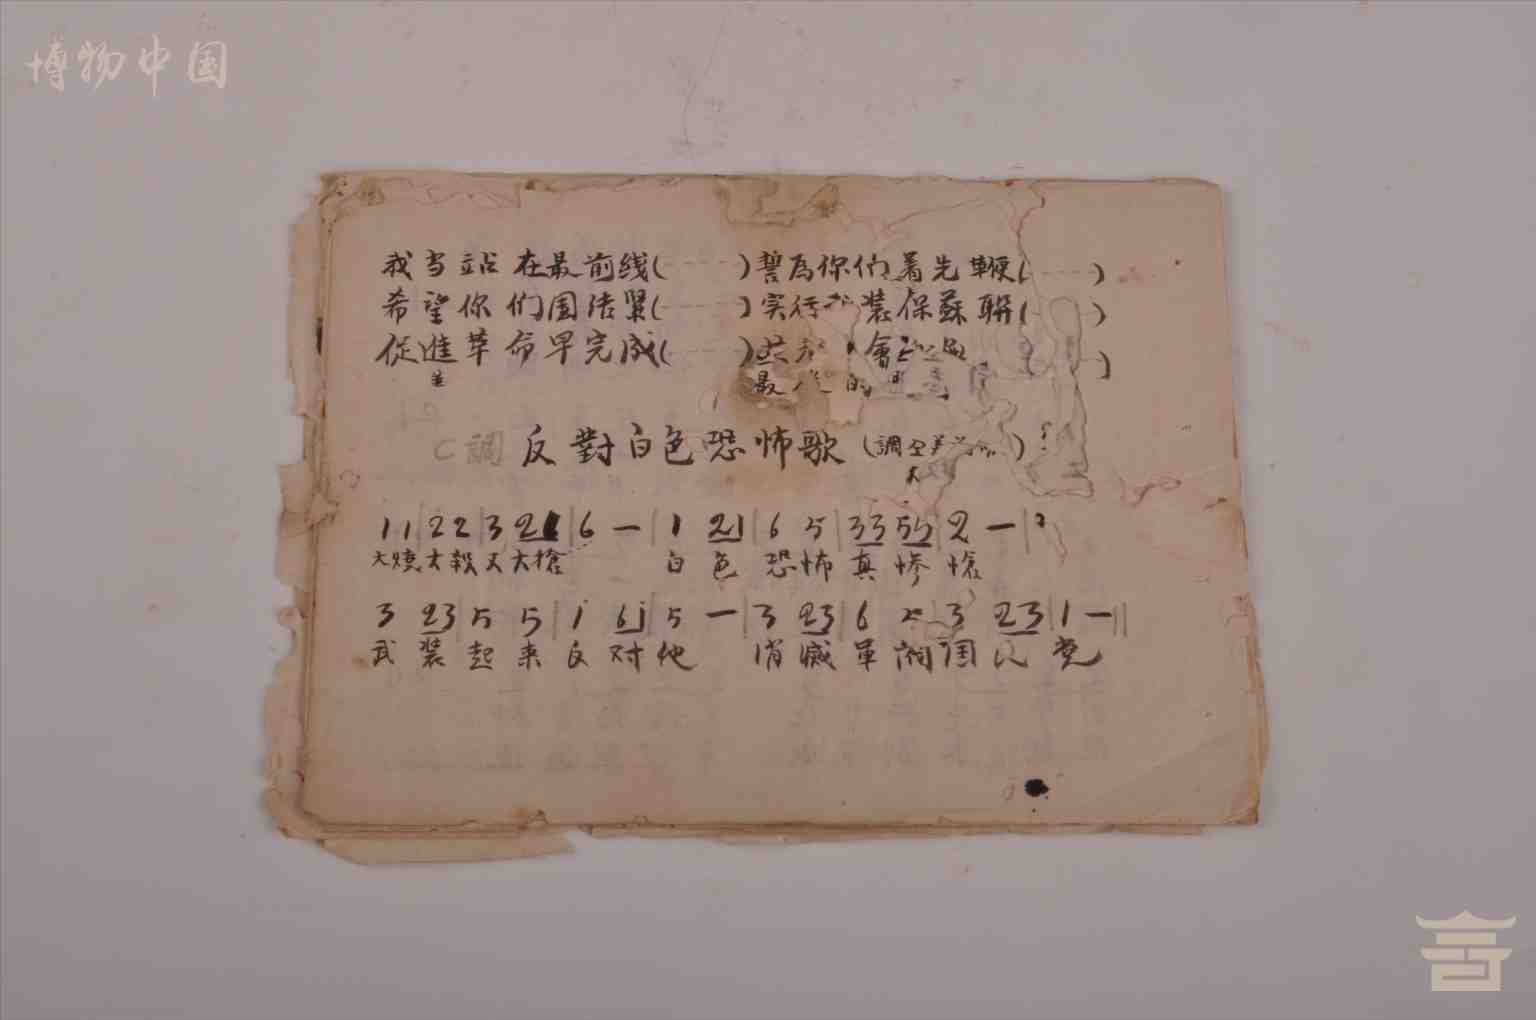 博物中国
我当站在最前线(-----)誓為你们着先鞭(-----)
希望你们团结緊(-----)实行 装保蘇聯(-----)
促進革命早完成(-----)共 會
並
最 的
C調 反對白色恐怖歌(調
1 1|2 2|3 2 1|6 —|1 2 1|6 5|3 3 5 5|2 —|
大燒大殺又大搶 白色恐怖真惨
3 2 3|5 5|i 6 i|5 —|3 2 3|6 5|3 2 3|1 —‖
武装起来反对他 消滅軍阀国民党